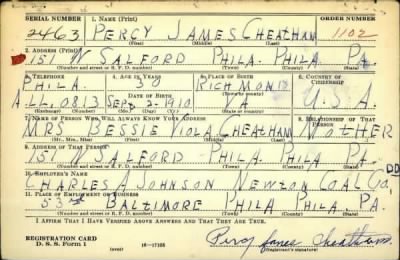 SERIAL NUMBER 1. NAME (Print) ORDER NUMBER
2463 PERCY JAMES CHEATHAM 1102
(First) (Middle) (Last)
2. ADDRESS (Print)
151 N SALFORD PHILA. PHILA PA.
(Number and street or R. F. D. number) (Town) (County) (State)
3. TELEPHONE 4. AGE IN YEARS 5. PLACE OF BIRTH 6. COUNTRY OF CITIZENSHIP
PHILA. RICHMOND
(Town or county)
DATE OF BIRTH
ALL. 0813 SEPT 2 1910 VA U.S.A.
(Exchange) (Number) (Mo.) (Day) (Yr.) (State or country)
7. NAME OF PERSON WHO WILL ALWAYS KNOW YOUR ADDRESS 8. RELATIONSHIP OF THAT PERSON
MRS. BESSIE VIOLA CHEATHAM MOTHER
(Mr., Mrs., Miss) (First) (Middle) (Last)
9. ADDRESS OF THAT PERSON
151 N SALFORD PHILA PHILA PA.
(Number and street or R. F. D. number) (Town) (County) (State)
10. EMPLOYER'S NAME DD
CHARLES A JOHNSON NEWTON COAL CO.
11. PLACE OF EMPLOYMENT OR BUSINESS
53rd BALTIMORE PHILA PHILA. PA.
(Number and street or R. F. D. number) (Town) (County) (State)
I AFFIRM THAT I HAVE VERIFIED ABOVE ANSWERS AND THAT THEY ARE TRUE.
REGISTRATION CARD
D. S. S. Form 1 (over) 16—17105 Percy James Cheatham
(Registrant's signature)